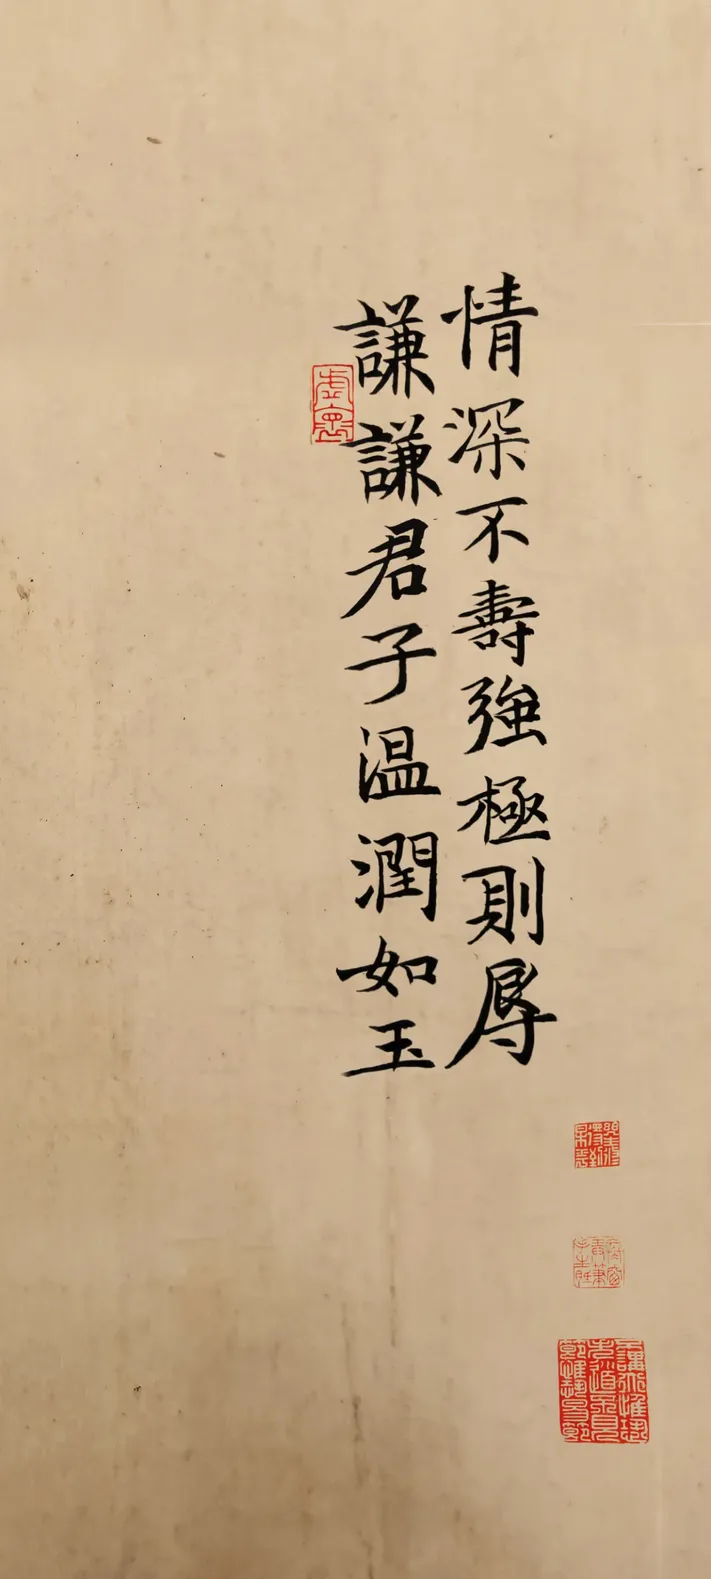 情深不壽強極則辱
謙謙君子温潤如玉
虚懷